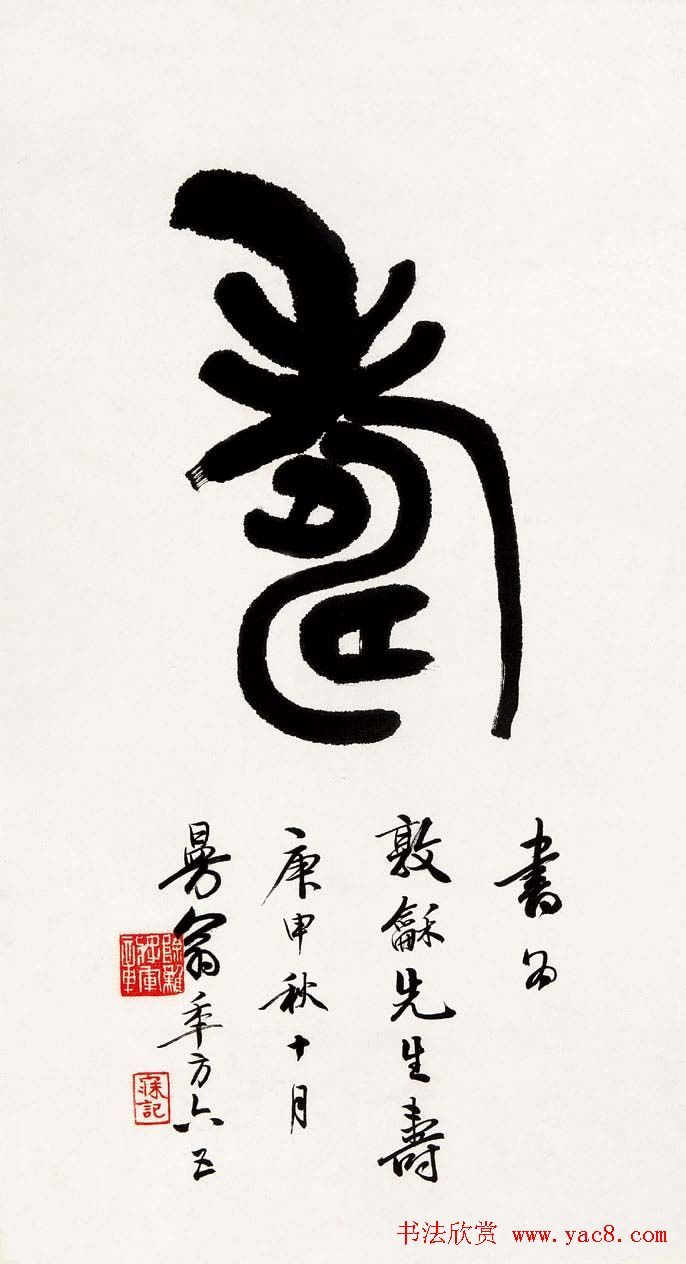 壽
書為
敦龢先生壽
庚申秋十月
曼翁年方六五
书法欣赏 www.yac8.com